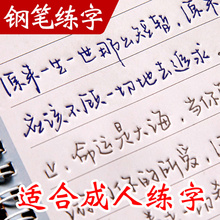 钢笔练字
原来一生一世那么短暂,原来
在该不顾一切地去追求
命运是大海,当你
适合成人练字